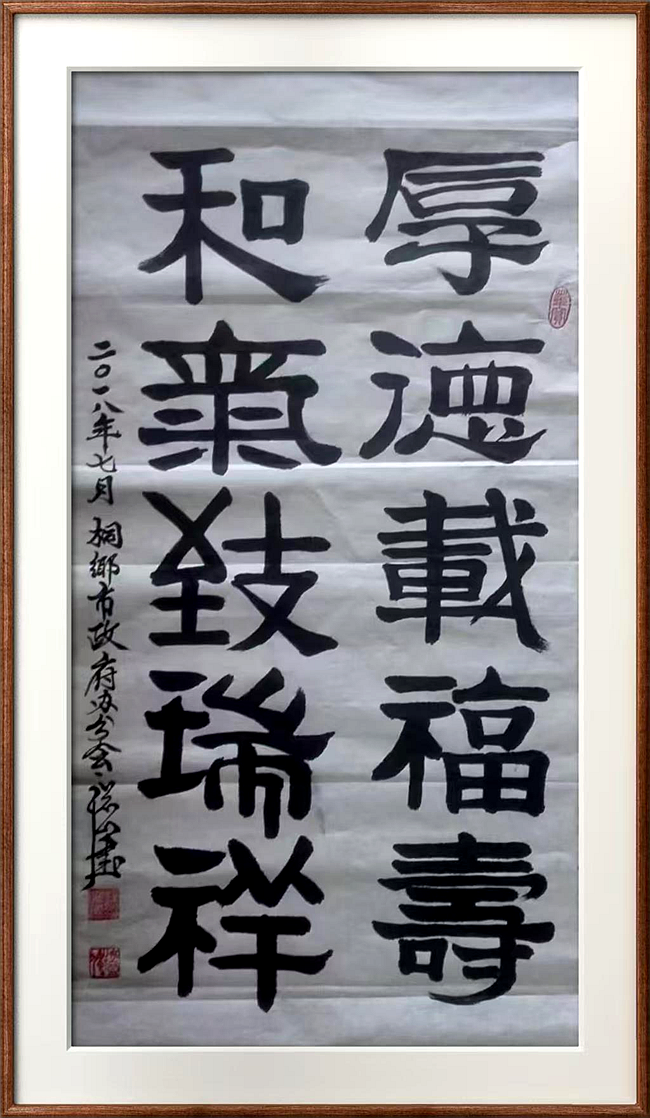 厚德載福壽
和氣致瑞祥
二〇一八年七月 桐鄉市政府办公会